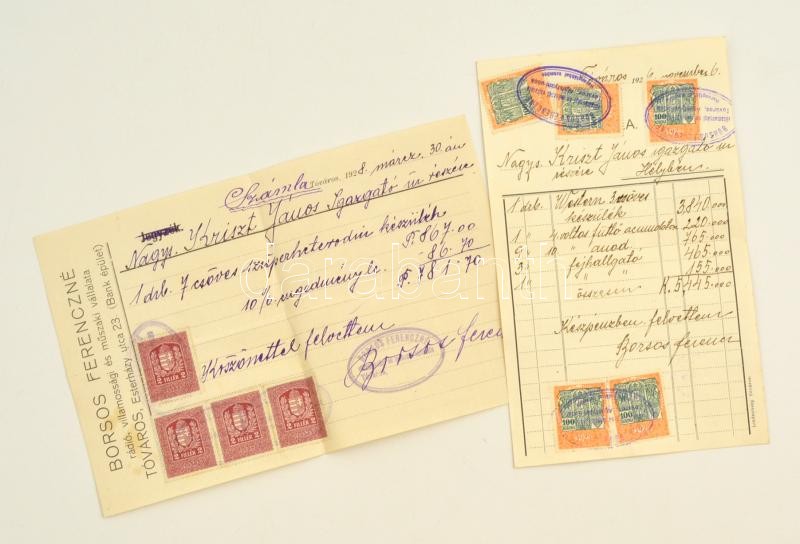 BORSOS FERENCZNÉ
rádió, villamossági és műszaki vállalata
TÓVÁROS, Esterházy utca 23. (Bank épület)
Számla Tóváros, 1928. márcz. 30.án
Jegyzék
Nagys. Kriszt János Igazgató úr részére
1 drb. 7 csöves szuperheterodin készülék P. 867.00
10% engedmény 86.70
P. 781.70
Köszönettel felvettem
Borsos ferenc
BORSOS FERENCZNÉ
2 FILLÉR 2
2 FILLÉR 2
2 FILLÉR 2
2 FILLÉR 2
Tóváros 1926 november 6.
Nagys. Kriszt János igazgató úr
részére Helyben
1 drb. Western 3 csöves
készülék 3,840.000
1 " 4 voltos fűtő acumulator 220.000
9 " 10 " anod " 765.000
3 " fejhallgató 465.000
1 " " 155.000
összesen K. 5,445.000
Készpénzben felvettem
Borsos ferenc
100
100
100
100
darabanth